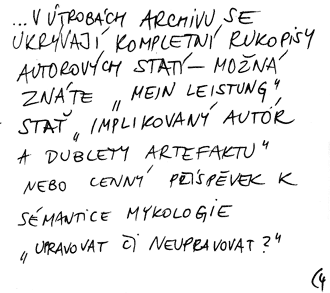 ...V ÚTROBÁCH ARCHIVU SE
UKRÝVAJÍ KOMPLETNÍ RUKOPISY
AUTOROVÝCH STATÍ – MOŽNÁ
ZNÁTE „MEIN LEISTUNG"
STAŤ „IMPLIKOVANÝ AUTÓR
A DUBLETY ARTEFAKTU"
NEBO CENNÝ PŘÍSPĚVEK K
SÉMANTICE MYKOLOGIE
„UPRAVOVAT ČI NEUPRAVOVAT?"
(4